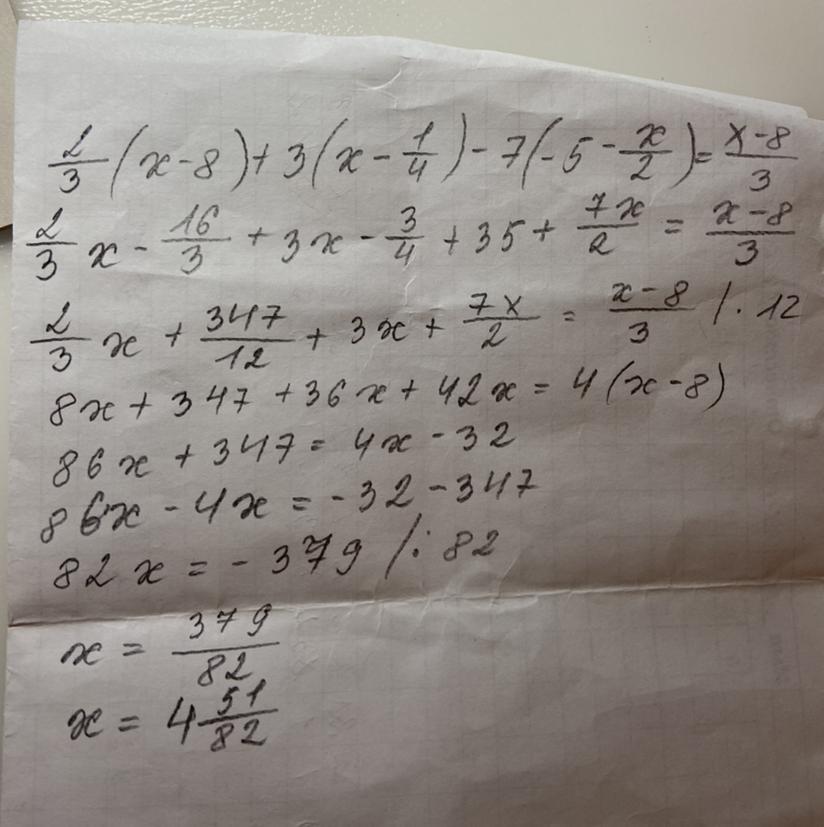 2/3 (x-8) + 3(x - 1/4) - 7(-5 - x/2) = x-8/3
2/3 x - 16/3 + 3x - 3/4 + 35 + 7x/2 = x-8/3
2/3 x + 347/12 + 3x + 7x/2 = x-8/3 /. 12
8x + 347 + 36x + 42x = 4(x-8)
86x + 347 = 4x - 32
86x - 4x = -32 - 347
82x = -379 /: 82
x = 379/82
x = 4 51/82